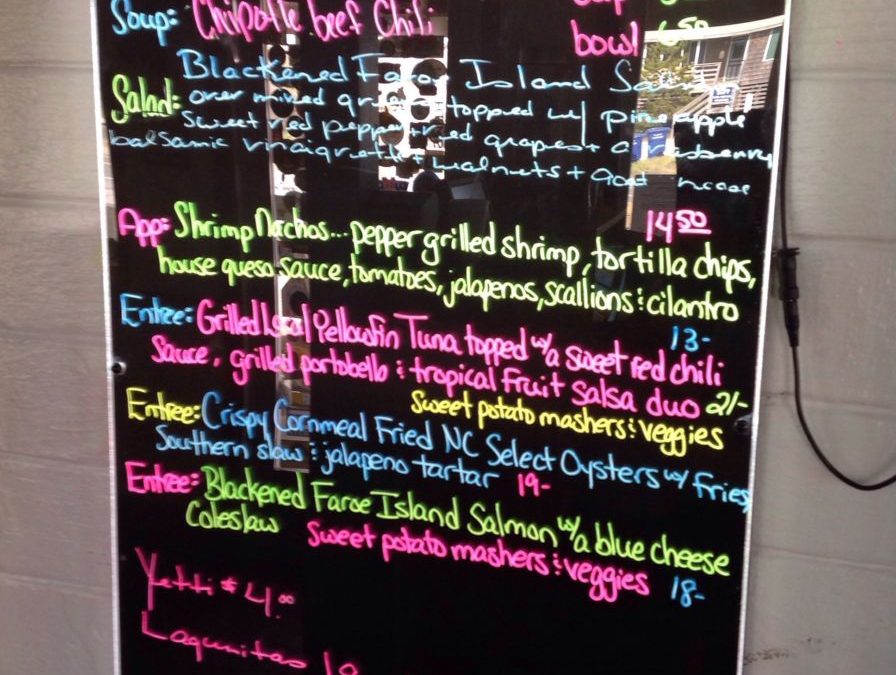 Soup: Chipotle beef Chili
bowl 6 50
Blackened Faroe Island
Salad: over mixed greens topped w/ pineapple
sweet red pepper + red grapes +
balsamic vinaigrette + walnuts + Goat
14 50
App: Shrimp Nachos... pepper grilled shrimp, tortilla chips,
house queso sauce, tomatoes, jalapenos, scallions & cilantro
13-
Entree: Grilled Local Yellowfin Tuna topped w/a sweet red chili
Sauce, grilled portobello & tropical Fruit Salsa duo 21-
Sweet potato mashers & veggies
Entree: Crispy Cornmeal Fried NC Select Oysters w/ fries,
Southern slaw & jalapeno tartar 19-
Entree: Blackened Faroe Island Salmon w/a blue cheese
Coleslaw Sweet potato mashers & veggies 18-
$4.00
Lagunitas